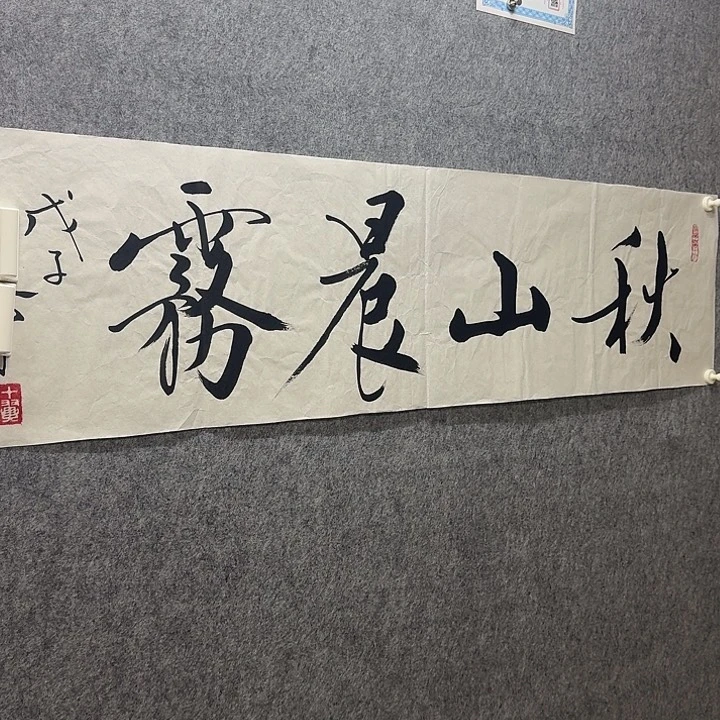 秋山晨霧
戊子